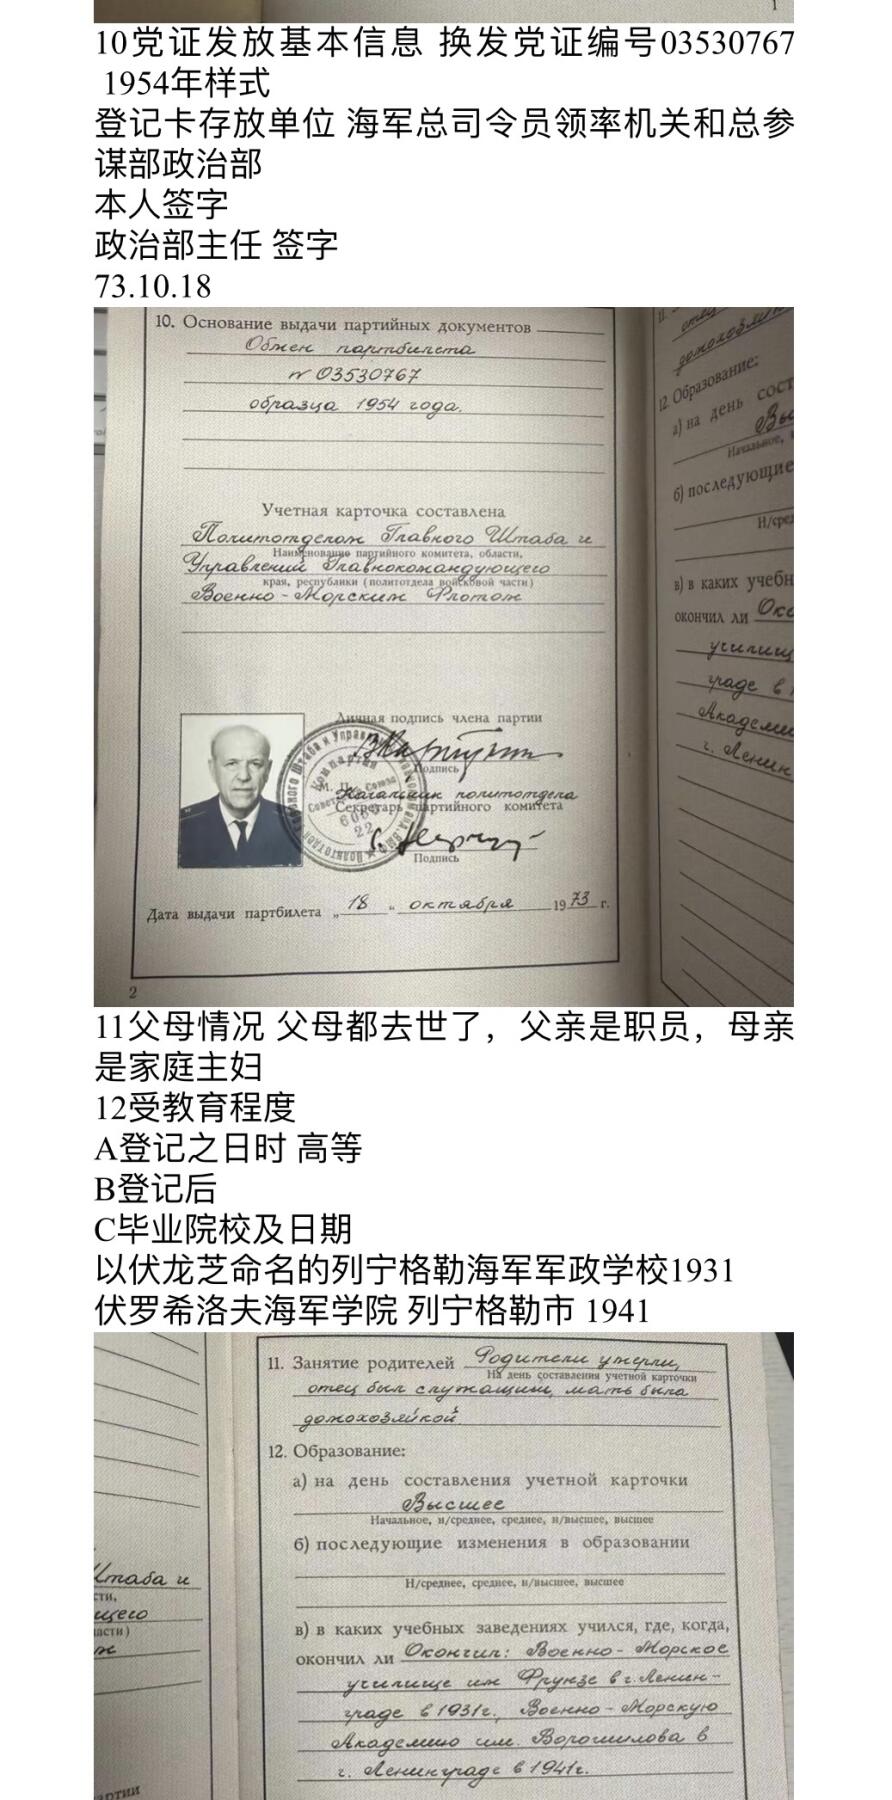 1
10党证发放基本信息 换发党证编号03530767
1954年样式
登记卡存放单位 海军总司令员领率机关和总参
谋部政治部
本人签字
政治部主任 签字
73.10.18
10. Основание выдачи партийных документов
Обмен партбилета
№ 03530767
образца 1954 года.
Учетная карточка составлена
Политотделом Главного Штаба и
Наименование партийного комитета, области,
Управлений Главнокомандующего
края, республики (политотдела войсковой части)
Военно-Морским Флотом
Личная подпись члена партии
Подпись
М. П.
Начальник политотдела
Секретарь партийного комитета
Подпись
Дата выдачи партбилета „ 18 “ октября 1973 г.
2
11.
отец
домохозяй
12. Образование:
а) на день сост
Вы
Начальное,
б) последующие
Н/сред
в) в каких учебн
окончил ли Око
училищ
граде в
Академи
г. Ленин
11父母情况 父母都去世了，父亲是职员，母亲
是家庭主妇
12受教育程度
A登记之日时 高等
B登记后
C毕业院校及日期
以伏龙芝命名的列宁格勒海军军政学校1931
伏罗希洛夫海军学院 列宁格勒市 1941
Штаба и
сти,
ющего
части)
м
артии
11. Занятие родителей Родители умерли,
На день составления учетной карточки
отец был служащим, мать была
домохозяйкой
12. Образование:
а) на день составления учетной карточки
Высшее
Начальное, н/среднее, среднее, н/высшее, высшее
б) последующие изменения в образовании
Н/среднее, среднее, н/высшее, высшее
в) в каких учебных заведениях учился, где, когда,
окончил ли Окончил: Военно-Морское
училище им Фрунзе в г. Ленин-
граде в 1931г., Военно-Морскую
Академию им. Ворошилова в
г. Ленинграде в 1941г.